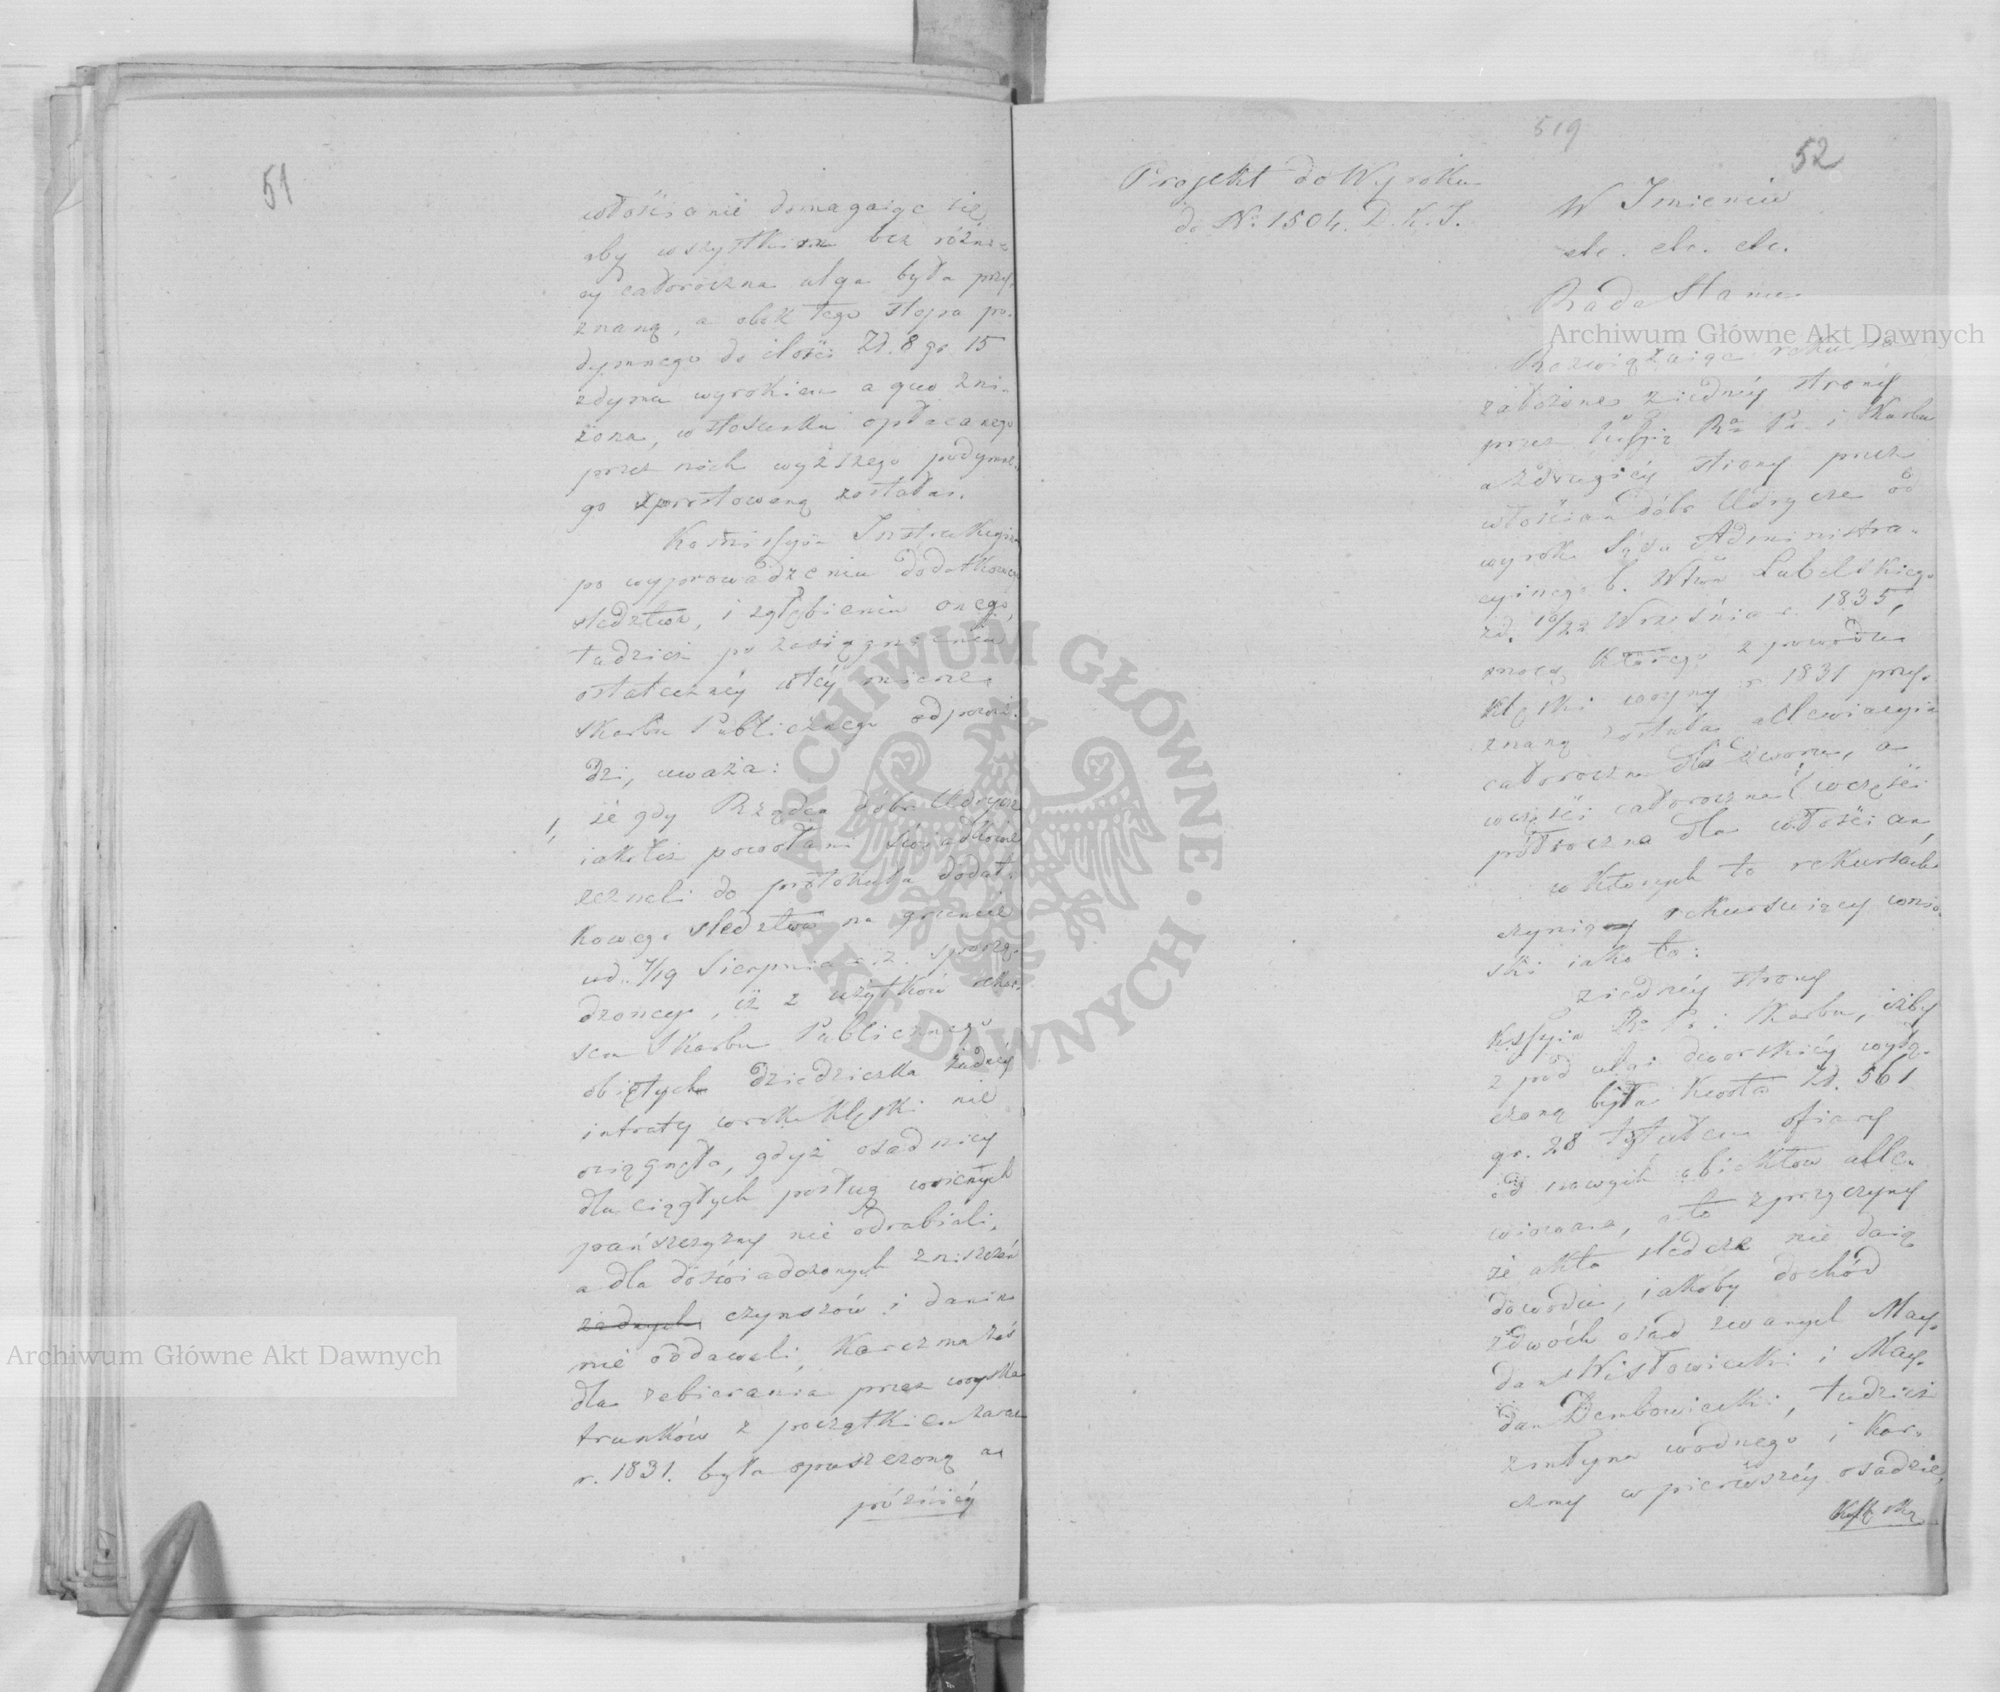 51
włościanie domagaiąc się
aby wszystkim bez różni-
cy całoroczna ulga była przy-
znaną, a obok tego stopa po-
dymnego do ilości Zł. 8 gr. 15
z dyma wyrokiem a quo zni-
żona, w stosunku opłacanego
przez nich wyższego podymne-
go sprostowaną została.
Kommissyia Instrukcyina
po wyprowadzeniu dodatkowego
śledztwa, i zgłębieniu onego,
tudzież po zasiągnieniu
ostateczney w téy mierze
Skarbu Publicznego odpowie-
dzi, uważa:
1, że gdy Rządca dóbr Udrycz
iakoteż powołani Świadkowie
zeznali do protokułu dodat-
kowego śledztwa na gruncie
w d. 7/19 Sierpnia r. z. sporzą-
dzonego, iż z użytków
Skarbu Publicznego
obiętych dziedziczka żadney
intraty w roku klęski nie
osiągnęła, gdyż osadnicy
dla ciągłych posług woiennych
pańszczyzny nie odrabiali,
a dla doświadczonych zniszczeń
żadnych czynszów i danin
nie oddawali, Karczma zaś
dla zabierania przez woyska
trunków z początkiem zaraz
r. 1831. była opuszczoną a
późniéy
519
52
Projekt do Wyroku
do No. 1504. D.K.I.
W Imieniu
etc. etc. etc.
Rada Stanu
Archiwum Główne Akt Dawnych
Rozwiązaiąc rekursa
założone z iednéy strony
przez Kssyią Rz. Pr. i Skarbu
a z drugiéy strony przez
włościan dóbr Udrycze od
wyroku Sądu Administra-
cyinego b. Wtwa Lubelskiego
z d. 10/22 Września r. 1835,
mocą którego z powodu
klęski woyny r. 1831 przy-
znaną została allewiacyia
całoroczna dla dworu, a
w części całoroczna w części
półroczna dla włościan,
w których to rekursach
czynią rekursuiący wnio-
ski iako to:
z iednéy strony
Kssyia Rz. Pr. i Skarbu, iżby
z pod ulgi dworskiéy wyłą-
czoną była kwota Zł. 561
gr. 28 tytułem ofiary
od nowych obiektów alle-
wiowana, a to z przyczyny
że akta śledcze nie daią
dowodu, iakoby dochód
z dwóch osad zwanych May-
dan Wisłowiecki i May-
dan Dembowiecki, tudzież
z młyna wodnego i Kar-
czmy w pierwszéy osadzie,
ARCHIWUM GŁÓWNE · AKT DAWNYCH ·
Archiwum Główne Akt Dawnych